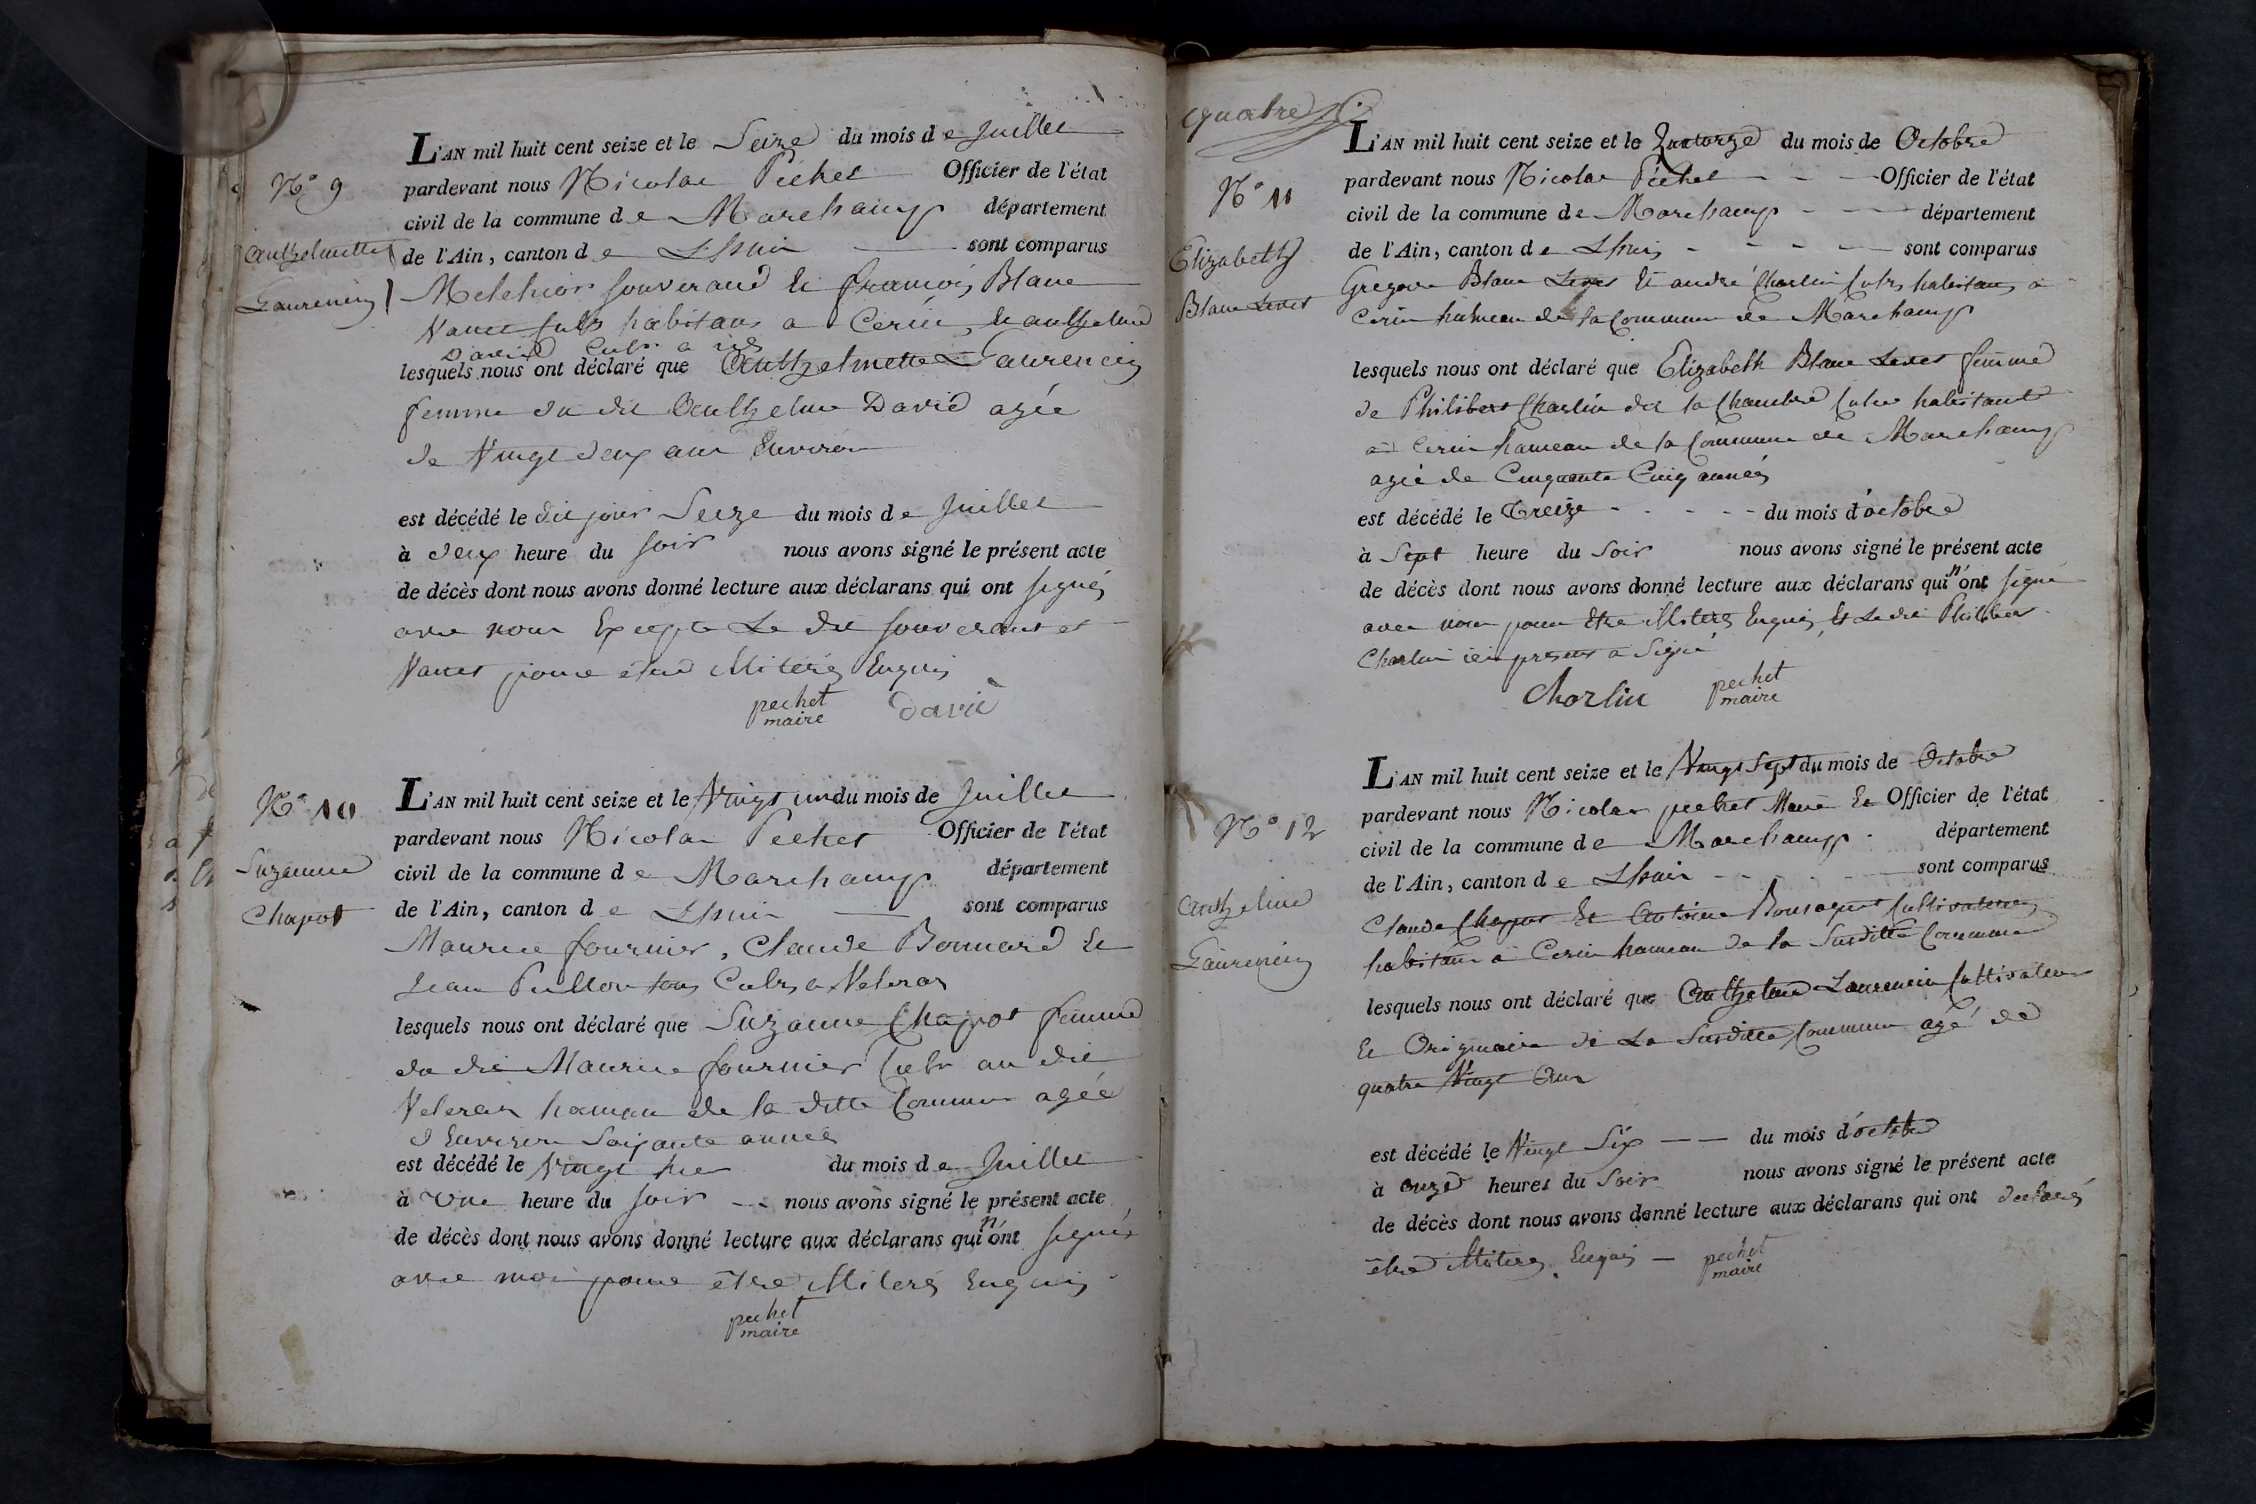 N.° 9
Anthelmette
Laurencin
L'AN mil huit cent seize et le Seize du mois de Juillet
pardevant nous Nicolas Pechet Officier de l'état
civil de la commune de Marchamp département
de l'Ain, canton de Lhuis sont comparus
Melchior Souverand et François Blanc
Vanet cultrs habitans a Cerin, et anthelme
David cultr a
lesquels nous ont déclaré que Anthelmette Laurencin
femme du dit Anthelme David agée
de Vingt deux ans Environ
est décédé le dit jour Seize du mois de Juillet
à deux heure du soir nous avons signé le présent acte
de décès dont nous avons donné lecture aux déclarans qui ont signés
avec nous Excepté Le dit Souverant et
Vanet pour être Illiterés Enquis
pechet maire
david
N.° 10
Suzanne
Chapot
L'AN mil huit cent seize et le Vingt un du mois de Juillet
pardevant nous Nicolas Pechet Officier de l'état
civil de la commune de Marchamp département
de l'Ain, canton de Lhuis sont comparus
Maurice fournier, Claude Bonnard et
Jean tous Cultrs a Veleras
lesquels nous ont déclaré que Suzanne Chapot femme
du dit Maurice fournier Cultr au dit
Veleras hameau de la ditte Commune agée
d'Environ Soixante années
est décédé le Vingt du mois de Juillet
à Une heure du soir nous avons signé le présent acte
de décès dont nous avons donné lecture aux déclarans qui n'ont signés
avec moi pour être Illiterés Enquis
pechet
maire
quatre
N° 11
Elizabeth
Blanc Levet
L'AN mil huit cent seize et le Quatorze du mois de Octobre
pardevant nous Nicolas Pechet Officier de l'état
civil de la commune de Marchamp département
de l'Ain, canton de Lhuis sont comparus
Gregoire Blanc Levet et andré Charlin Cultrs habitans a
Cerin hameau de la Commune de Marchamp
lesquels nous ont déclaré que Elizabeth Blanc Levet femme
de Philibert Charlin dit la Chambre Cultrs habitante
a Cerin hameau de la Commune de Marchamp
agée de Cinquante Cinq années
est décédé le Treize du mois d'octobre
à Sept heure du Soir nous avons signé le présent acte
de décès dont nous avons donné lecture aux déclarans qui n'ont signé
avec nous pour être Illiterés Enquis, Et Ledit Philibert
Charlin ici present a Signé
Charlin
pechet
maire
N° 12
Anthelme
Laurencin
L'AN mil huit cent seize et le Vingt Sept du mois de Octobre
pardevant nous Nicolas pechet Maire Et Officier de l'état
civil de la commune de Marchamp département
de l'Ain, canton de Lhuis sont comparus
Claude Chapot Et Antoine Cultivateurs
habitans a Cerin hameau de la Susditte Commune
lesquels nous ont déclaré que Anthelme Laurencin Cultivateur
Et Originaire de La Susditte Commune agé de
quatre Vingt Ans
est décédé le Vingt Six du mois d'octobre
à onze heures du Soir nous avons signé le présent acte
de décès dont nous avons donné lecture aux déclarans qui ont declarés
être Illiterés Enquis
pechet
maire